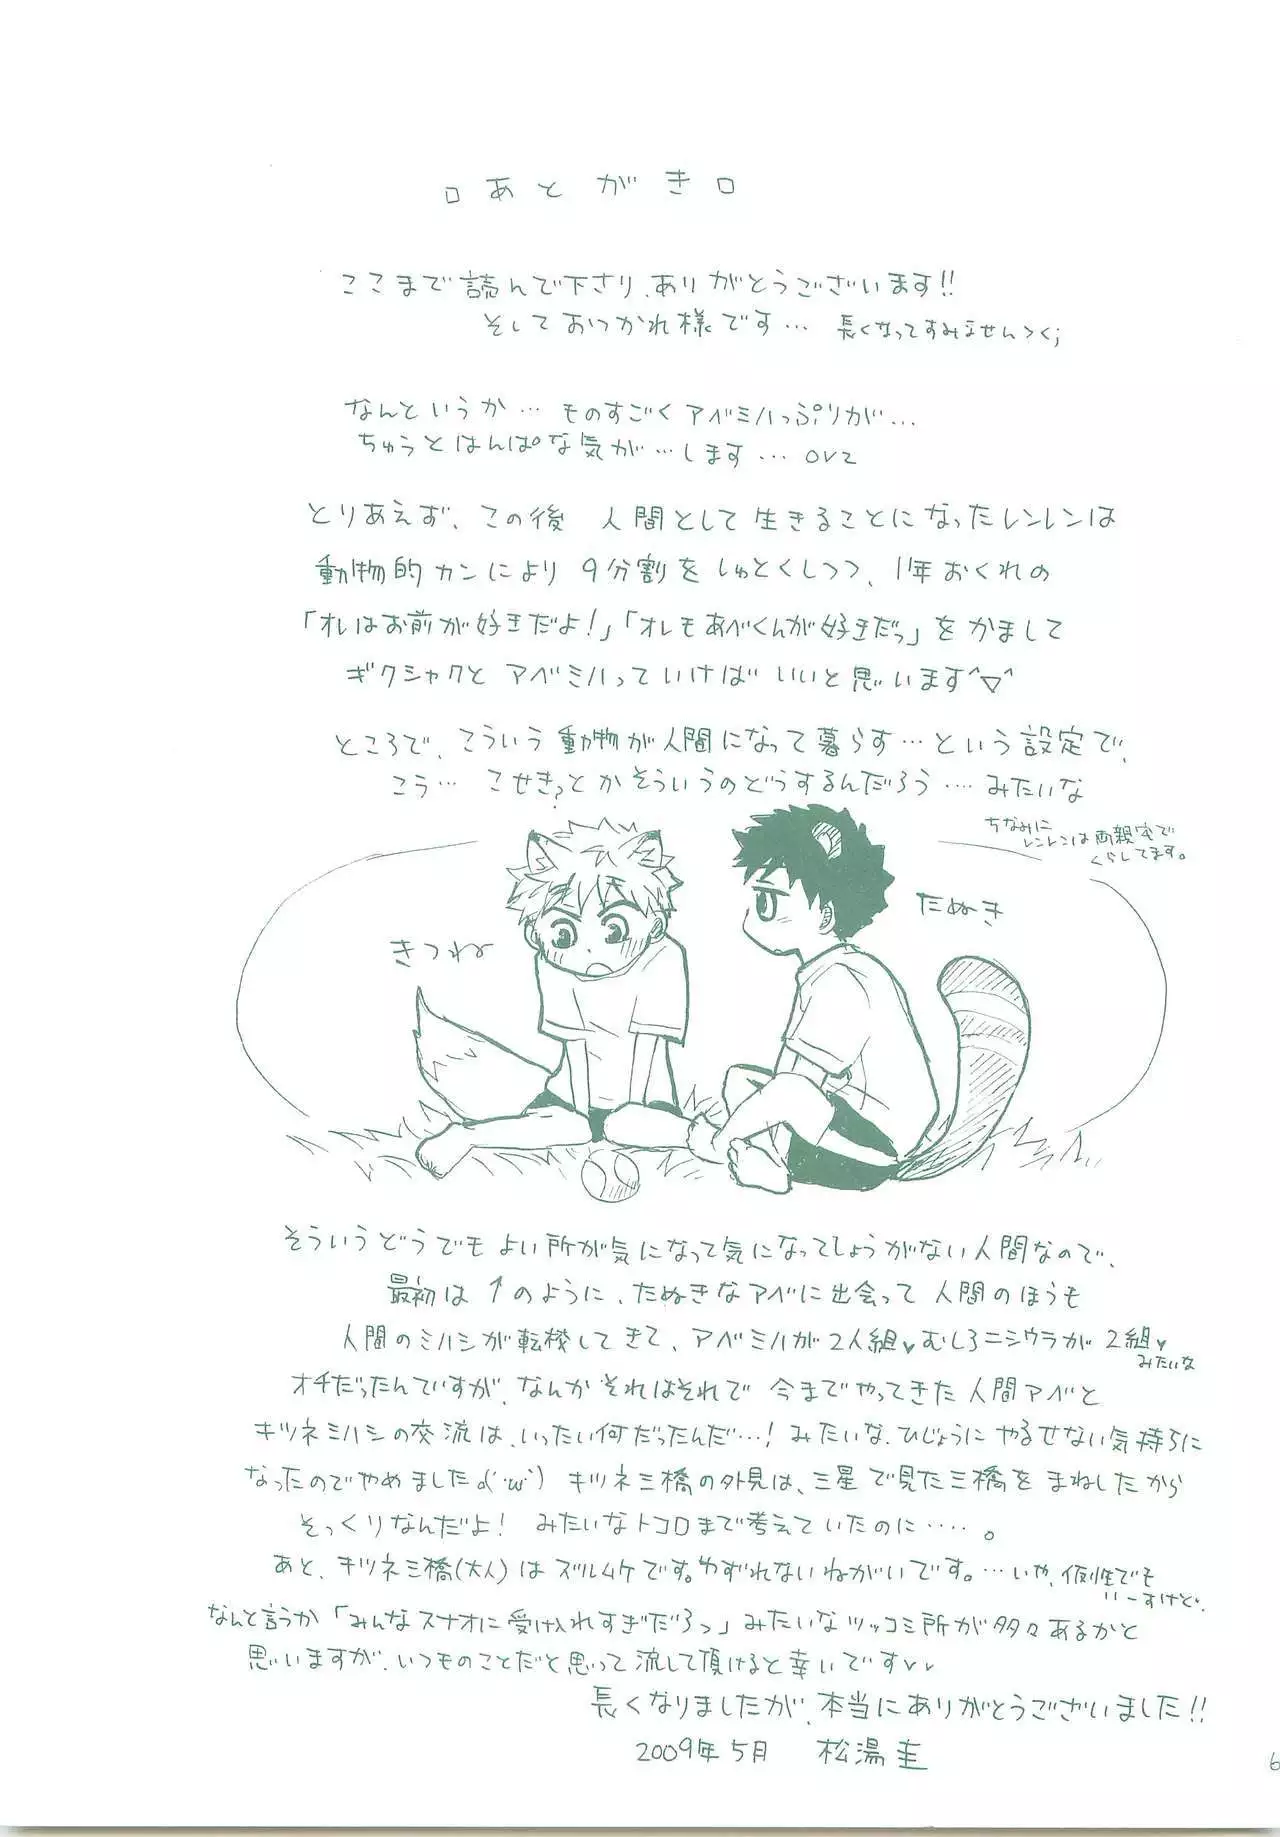 □あとがき□
ここまで読んで下さり、ありがとうございます!!
そしておつかれ様です… 長くなってすみません><;
なんというか… ものすごくアベミハっぷりが…
ちゅうとはんぱな気が…します… orz
とりあえず、この後 人間として生きることになったレンレンは
動物的カンにより 9分割をしゅとくしつつ、1年おくれの
「オレはお前が好きだよ!」「オレもあべくんが好きだっ」をかまして
ギクシャクと アベミハっていけば いいと思います^▽^
ところで、こういう動物が人間になって暮らす…という設定で、
こう… こせき?とかそういうのどうするんだろう…. みたいな
ちなみに
レンレンは両親宅で
くらしてます。
きつね
たぬき
そういうどうでもよい所が気になって気になってしょうがない人間なので、
最初は ↑のように、たぬきなアベに出会って 人間のほうも
人間のミハシが転校してきて、アベミハが2人組♥むしろニシウラが 2組♥
みたいな
オチだったんですが、なんかそれはそれで 今までやってきた人間アベと
キツネミハシの交流は、いったい何だったんだ…! みたいな、ひじょうに やるせない気持ちに
なったのでやめましたd(´・ω・`) キツネ三橋の外見は、三星で見た三橋を まねしたから
そっくりなんだよ! みたいなトコロまで考えていたのに‥‥。
あと、キツネ三橋(大人)はズルムケです。ゆずれないねがいです。…いや、仮性でも
いーすけど。
なんと言うか「みんなスナオに受け入れすぎだろっ」みたいなツッコミ所が多々あるかと
思いますが、いつものことだと思って流して頂けると幸いですvv
長くなりましたが、本当にありがとうございました!!
2009年5月 松湯圭
6